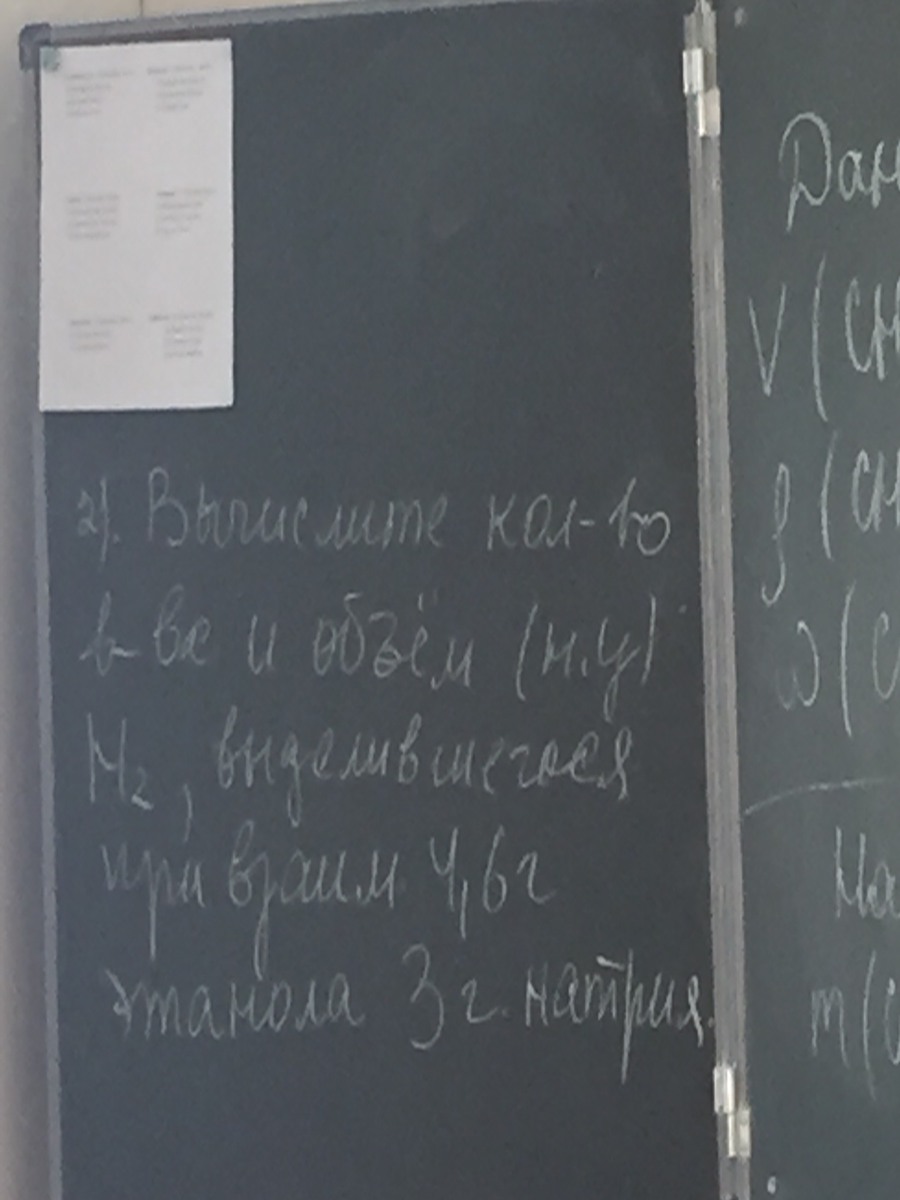 2). Вычислите кол-во
в-ва и объём (н.у)
H₂, выделившегося
при взаим. 4,6 г
этанола 3 г. натрия.
Дан
V (CH
ρ (CH
ω (C
На
m (C